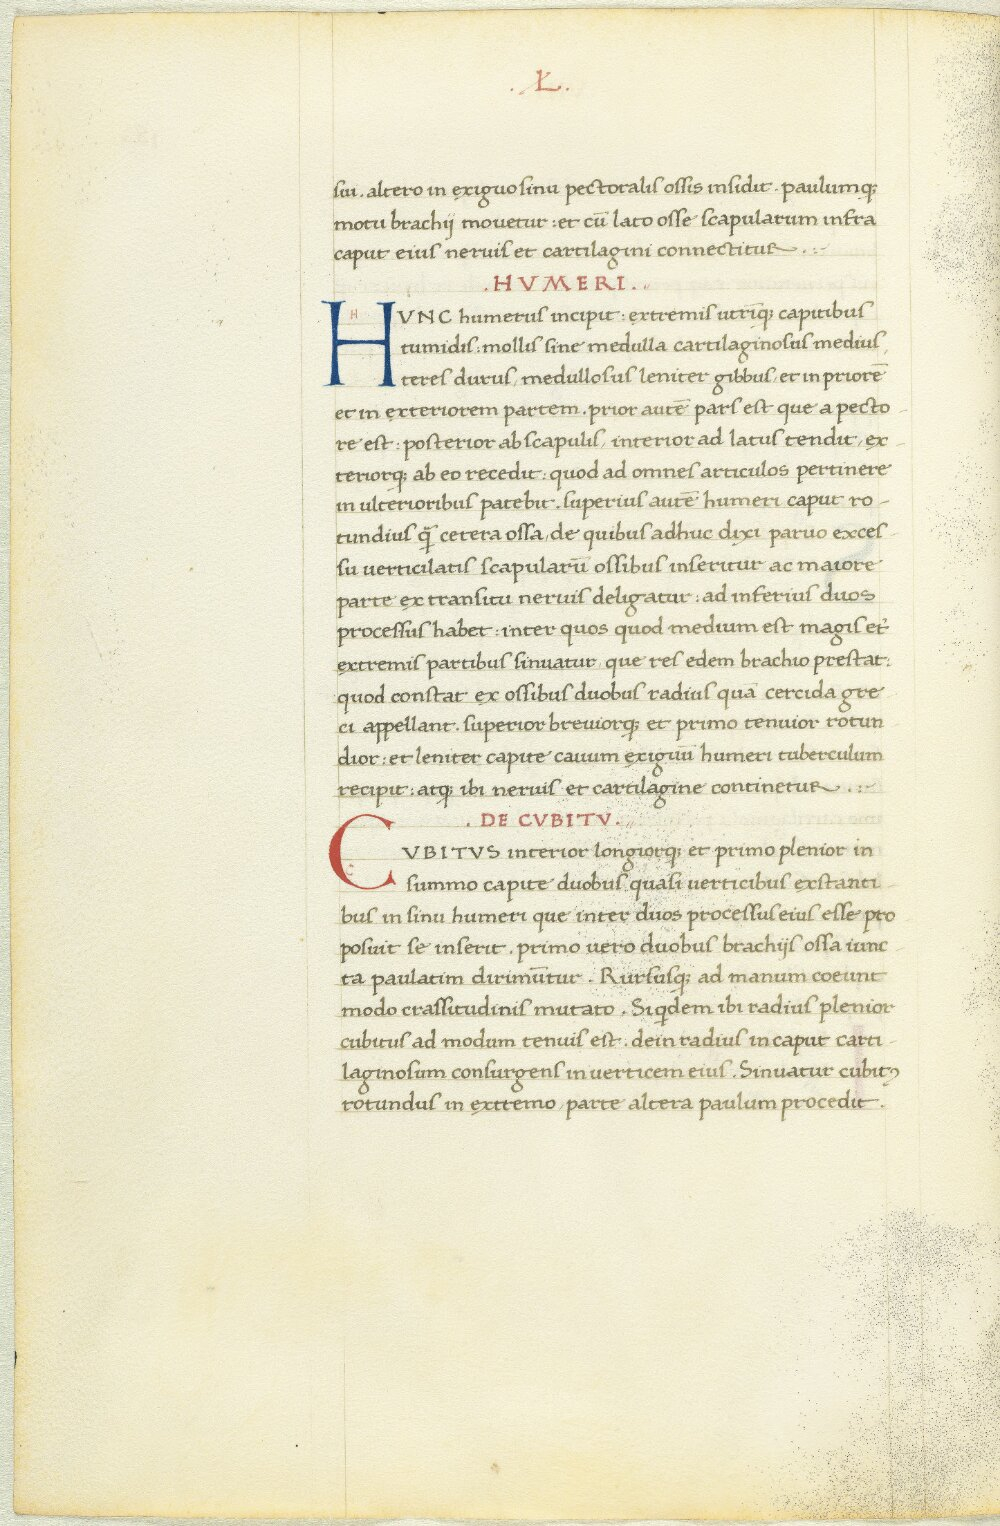 .XL.
sui . altero in exiguo sinu pectoralis ossis insidit . paulumq;
motu brachij movetur : et cū lato osse scapularum infra
caput eius nervis et cartilagini connectitur . : ~
. HVMERI .
HVNC humerus incipit : extremis utriq; capitibus
tumidis : mollis sine medulla cartilaginosus medius /
teres durus / medullosus leniter gibbus / et in priorē
et in exteriorem partem . prior autē pars est que a pecto-
re est : posterior ab scapulis / interior ad latus tendit / ex-
teriorq; ab eo recedit : quod ad omnes articulos pertinere
in ulterioribus patebit . superius autē humeri caput ro-
tundius q̄ cetera ossa / de quibus adhuc dixi parvo exces-
su verticilatis scapularū ossibus inseritur ac maiore
parte ex transitu nervis deligatur : ad inferius duos
processus habet : inter quos quod medium est magis et
extremis partibus sinuatur que res edem brachio prestat :
quod constat ex ossibus duobus radius quā cercida gre-
ci appellant . superior breviorq; et primo tenuior rotun-
dior : et leniter capite cavum exiguū humeri tuberculum
recipit : atq; ibi nervis et cartilagine continetur . : ~
. DE CVBITV .
CVBITVS interior longiorq; et primo plenior in
summo capite duobus quasi verticibus exstanti-
bus in sinu humeri que inter duos processus eius esse pro
posuit se inserit . primo vero duobus brachijs ossa iunc-
ta paulatim dirimūtur . Rursusq; ad manum coeunt
modo crassitudinis mutato . Siqdem ibi radius plenior
cubitus ad modum tenuis est . dein radius in caput carti-
laginosum consurgens in verticem eius . Sinuatur cubitꝯ
rotundus in extremo / parte altera paulum procedit .